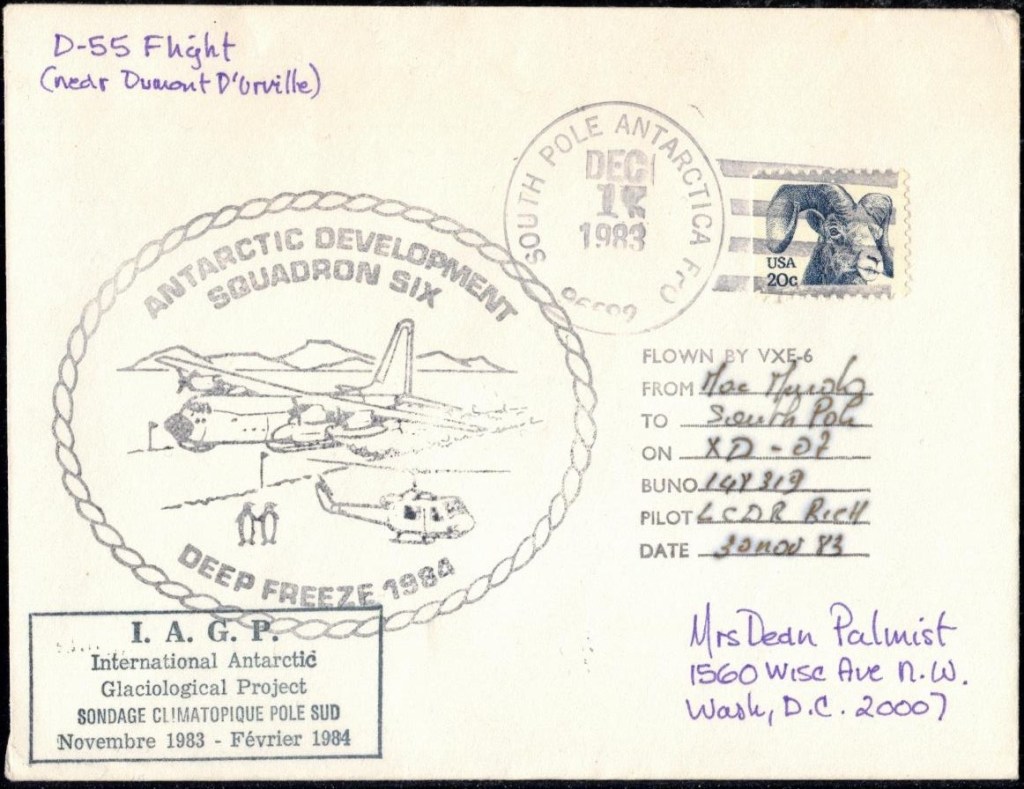 D-55 Flight
(near Dumont D'Urville)
SOUTH POLE ANTARCTICA FPO
DEC
1983
USA
20c
ANTARCTIC DEVELOPMENT
SQUADRON SIX
DEEP FREEZE 1984
FLOWN BY VXE-6
FROM Mac Murdo
TO South Pole
ON XD-07
BUNO 148319
PILOT LCDR RICH
DATE 30 NOV 83
I. A. G. P.
International Antarctic
Glaciological Project
SONDAGE CLIMATOPIQUE POLE SUD
Novembre 1983 - Février 1984
Mrs Dean Palmist
1560 Wisc Ave N.W.
Wash, D.C. 20007